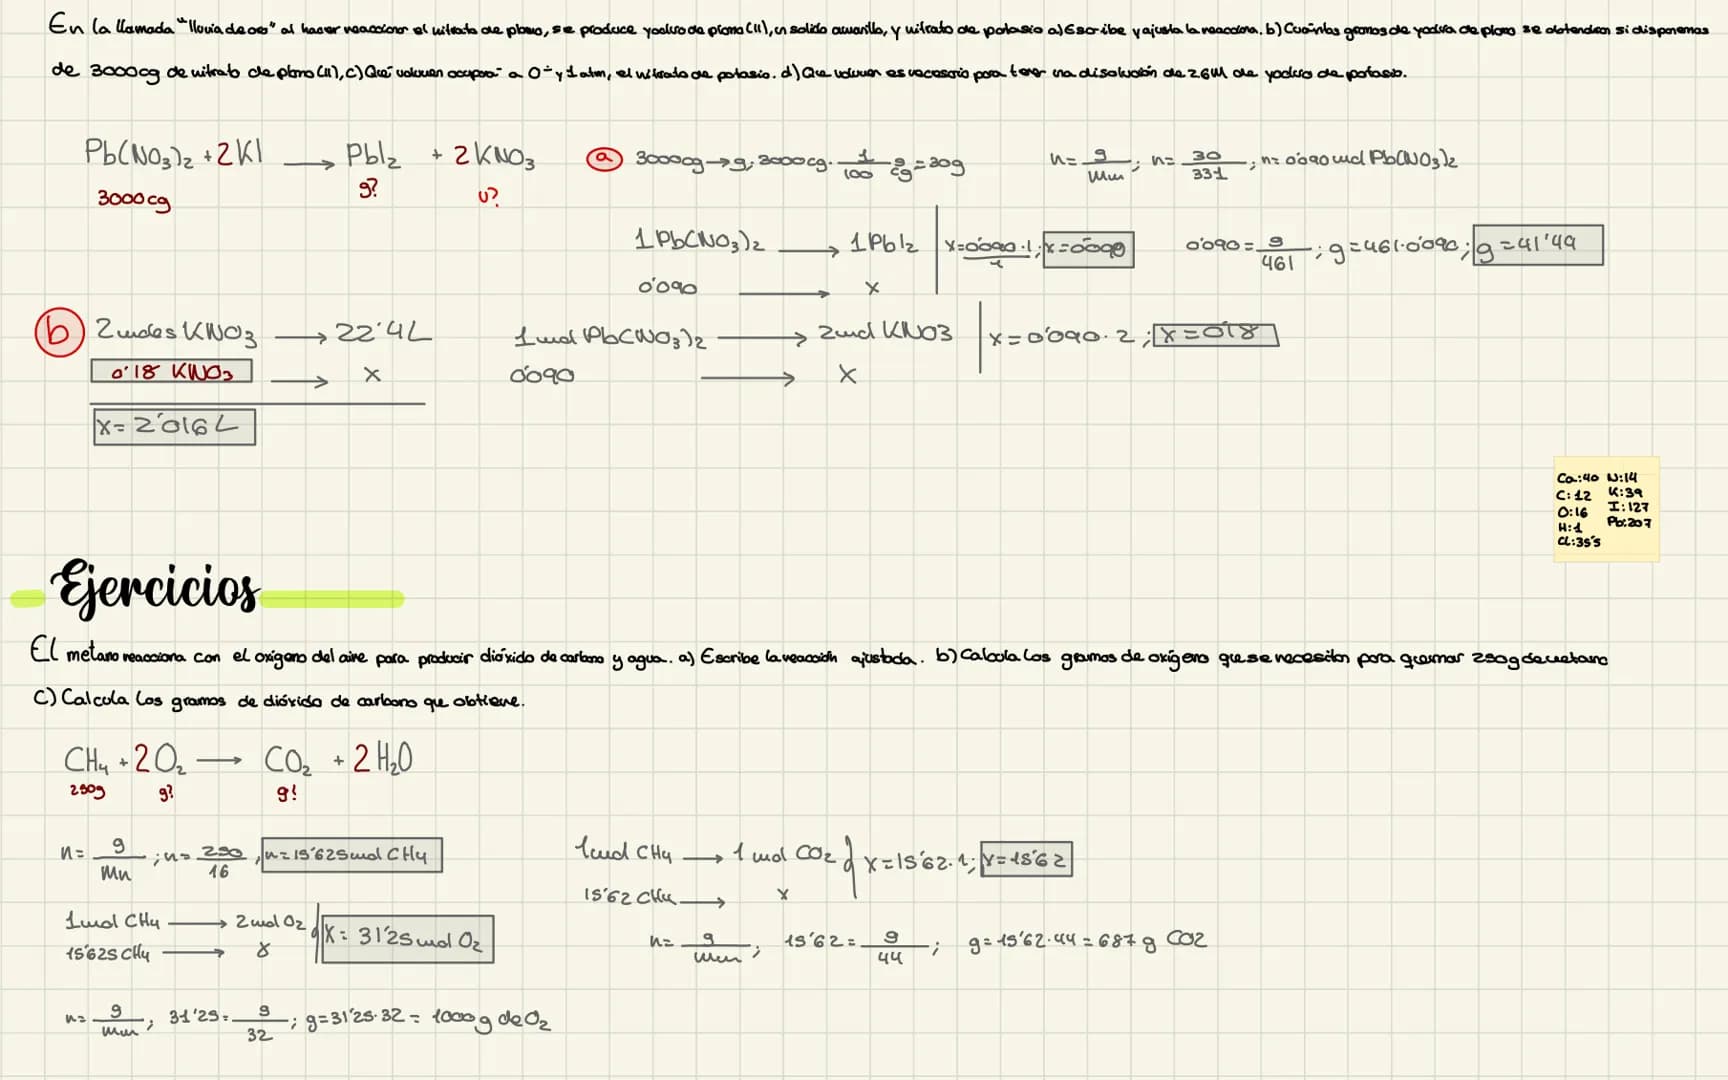 En la llamada "lluvia de oro" al hacer reaccionar el nitrato de plomo, se produce yoduro de plomo (II), un solido amarillo, y nitrato de potasio a) Escribe y ajusta la reacción. b) Cuántos gramos de yoduro de plomo se obtendran si disponemos
de 3000cg de nitrato de plomo (II), c) Qué volumen ocupará a 0º y 1 atm, el nitrato de potasio. d) Que volumen es necesario para tener una disolución de 2.6M de yoduro de potasio.
Pb(NO3)2 + 2KI ⟶ PbI2 + 2KNO3
3000cg g? v?
a 3000cg→g; 3000cg · 1/100 g/cg = 30g n= g/Mm ; n= 30/331 ; n= 0'090 mol Pb(NO3)2
1 Pb(NO3)2 ⟶ 1 PbI2 x= 0'090·1/1 ; x=0'090 0'090= g/461 ; g=461·0'090; g=41'49
0'090 ⟶ x
b 2 moles KNO3 ⟶ 22'4L 1 mol Pb(NO3)2 ⟶ 2 mol KNO3 x=0'090·2 ; x=0'18
0'18 KNO3 ⟶ x 0'090 ⟶ x
x= 2'016 L
Ca:40 N:14
C:12 K:39
O:16 I:127
H:1 Pb:207
CL:35'5
Ejercicios
El metano reacciona con el oxígeno del aire para producir dióxido de carbono y agua. a) Escribe la reacción ajustada. b) Calcula los gramos de oxígeno que se necesitan para quemar 250g de metano
C) Calcula los gramos de dióxido de carbono que obtiene.
CH4 + 2O2 ⟶ CO2 + 2H2O
250g g? g?
n= g/Mm ; n= 250/16 , n=15'625mol CH4 1 mol CH4 ⟶ 1 mol CO2 x=15'62·1; x=15'62
15'62 CH4 ⟶ x
1 mol CH4 ⟶ 2 mol O2 x= 31'25 mol O2
15'625 CH4 ⟶ x
n= g/Mm ; 15'62= g/44 ; g=15'62·44 = 687 g CO2
n= g/Mm ; 31'25= g/32 ; g=31'25·32 = 1000g de O2